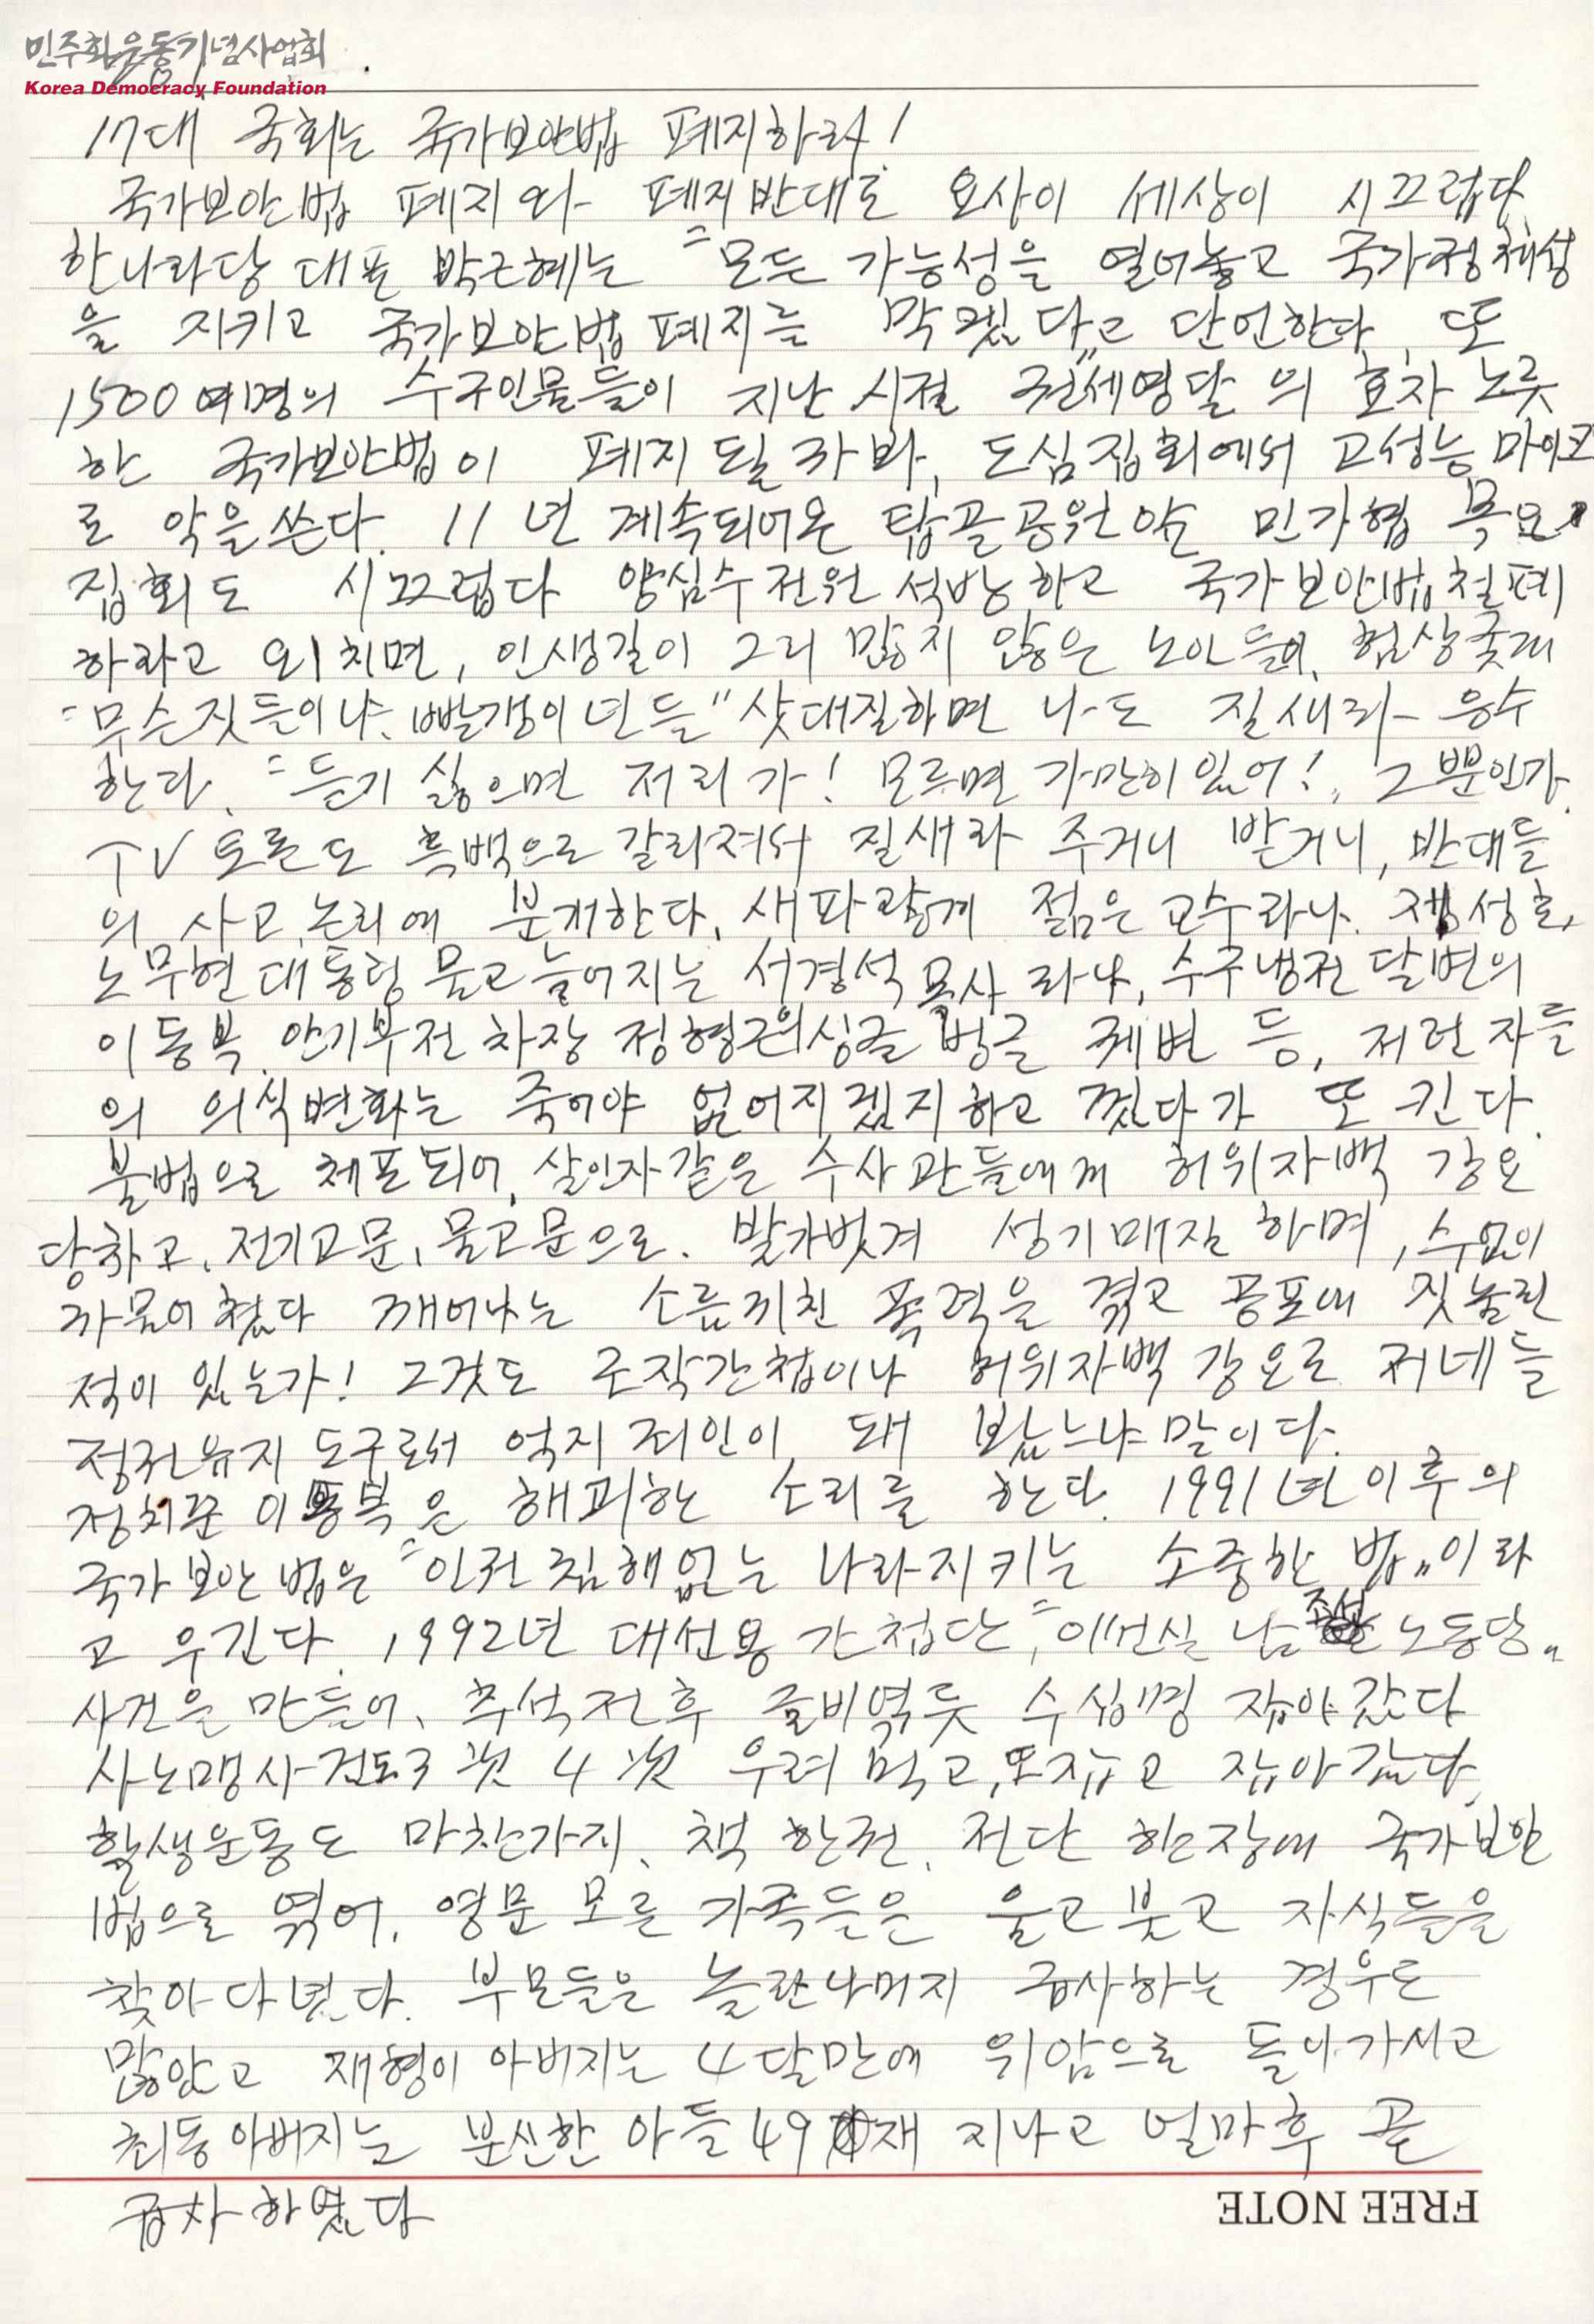 민주화운동기념사업회
Korea Democracy Foundation
17대 국회는 국가보안법 폐지하라!
국가보안법 폐지와 폐지반대로 요사이 세상이 시끄럽다
한나라당 대표 박근혜는 "모든 가능성을 열어놓고 국가정체성
을 지키고 국가보안법 폐지를 막겠다"고 단언한다, 또
1500여명의 수구인물들이 지난 시절 권세영달의 효자노릇
한 국가보안법이 폐지될까봐, 도심집회에서 고성능 마이크
로 악을쓴다. 11년 계속되어온 탑골공원앞 민가협 목요
집회도 시끄럽다 양심수전원 석방하고 국가보안법철폐
하라고 외치면, 인생길이 그리 많지 않은 노인들이, 험상궂게
"무슨짓들이냐, 빨갱이년들" 삿대질하면 나도 질새라 응수
한다. "듣기 싫으면 저리가! 모르면 가만히있어!" 그뿐인가.
TV 토론도 흑백으로 갈리져서 질새라 주거니 받거니, 반대들
의 사고,논리에 분개한다. 새파랗게 젊은 교수라나. 제성호,
노무현대통령 물고늘어지는 서경석 목사라나, 수구냉전 달변의
이동복, 안기부전 차장 정형근의싱글 벙글 궤변 등, 저런자들
의 의식변화는 죽어야 없어지겠지하고 껐다가 또 킨다.
불법으로 체포되어, 살인자같은 수사관들에게 허위자백 강요
당하고, 전기고문, 물고문으로. 발가벗겨 성기매질 하며, 수없이
까물어쳤다 깨어나는 소름끼친 폭력을 겪고 공포에 짓눌린
적이 있는가! 그것도 조작간첩이나 허위자백 강요로 저네들
정권유지 도구로서 억지죄인이 돼 봤느냐말이다.
정치꾼 이동복은 해괴한 소리를 한다. 1991년이후의
국가보안법은 "인권침해없는 나라지키는 소중한 법"이라
고 우긴다. 1992년 대선용 간첩단, "이선실 남조선노동당"
사건을 만들어, 추석전후 굴비엮듯 수십명 잡아갔다
사노맹사건도3次 4次 우려먹고,또잡고 잡아갔다.
학생운동도 마찬가지, 책 한권, 전단 한장에 국가보안
법으로 엮어, 영문 모른 가족들은 울고불고 자식들을
찾아다녔다. 부모들은 놀란나머지 급사하는 경우도
많았고 재형이 아버지는 4달만에 위암으로 돌아가시고
최동아버지는 분신한 아들 49재 지나고 얼마후 곧
급사하였다
FREE NOTE